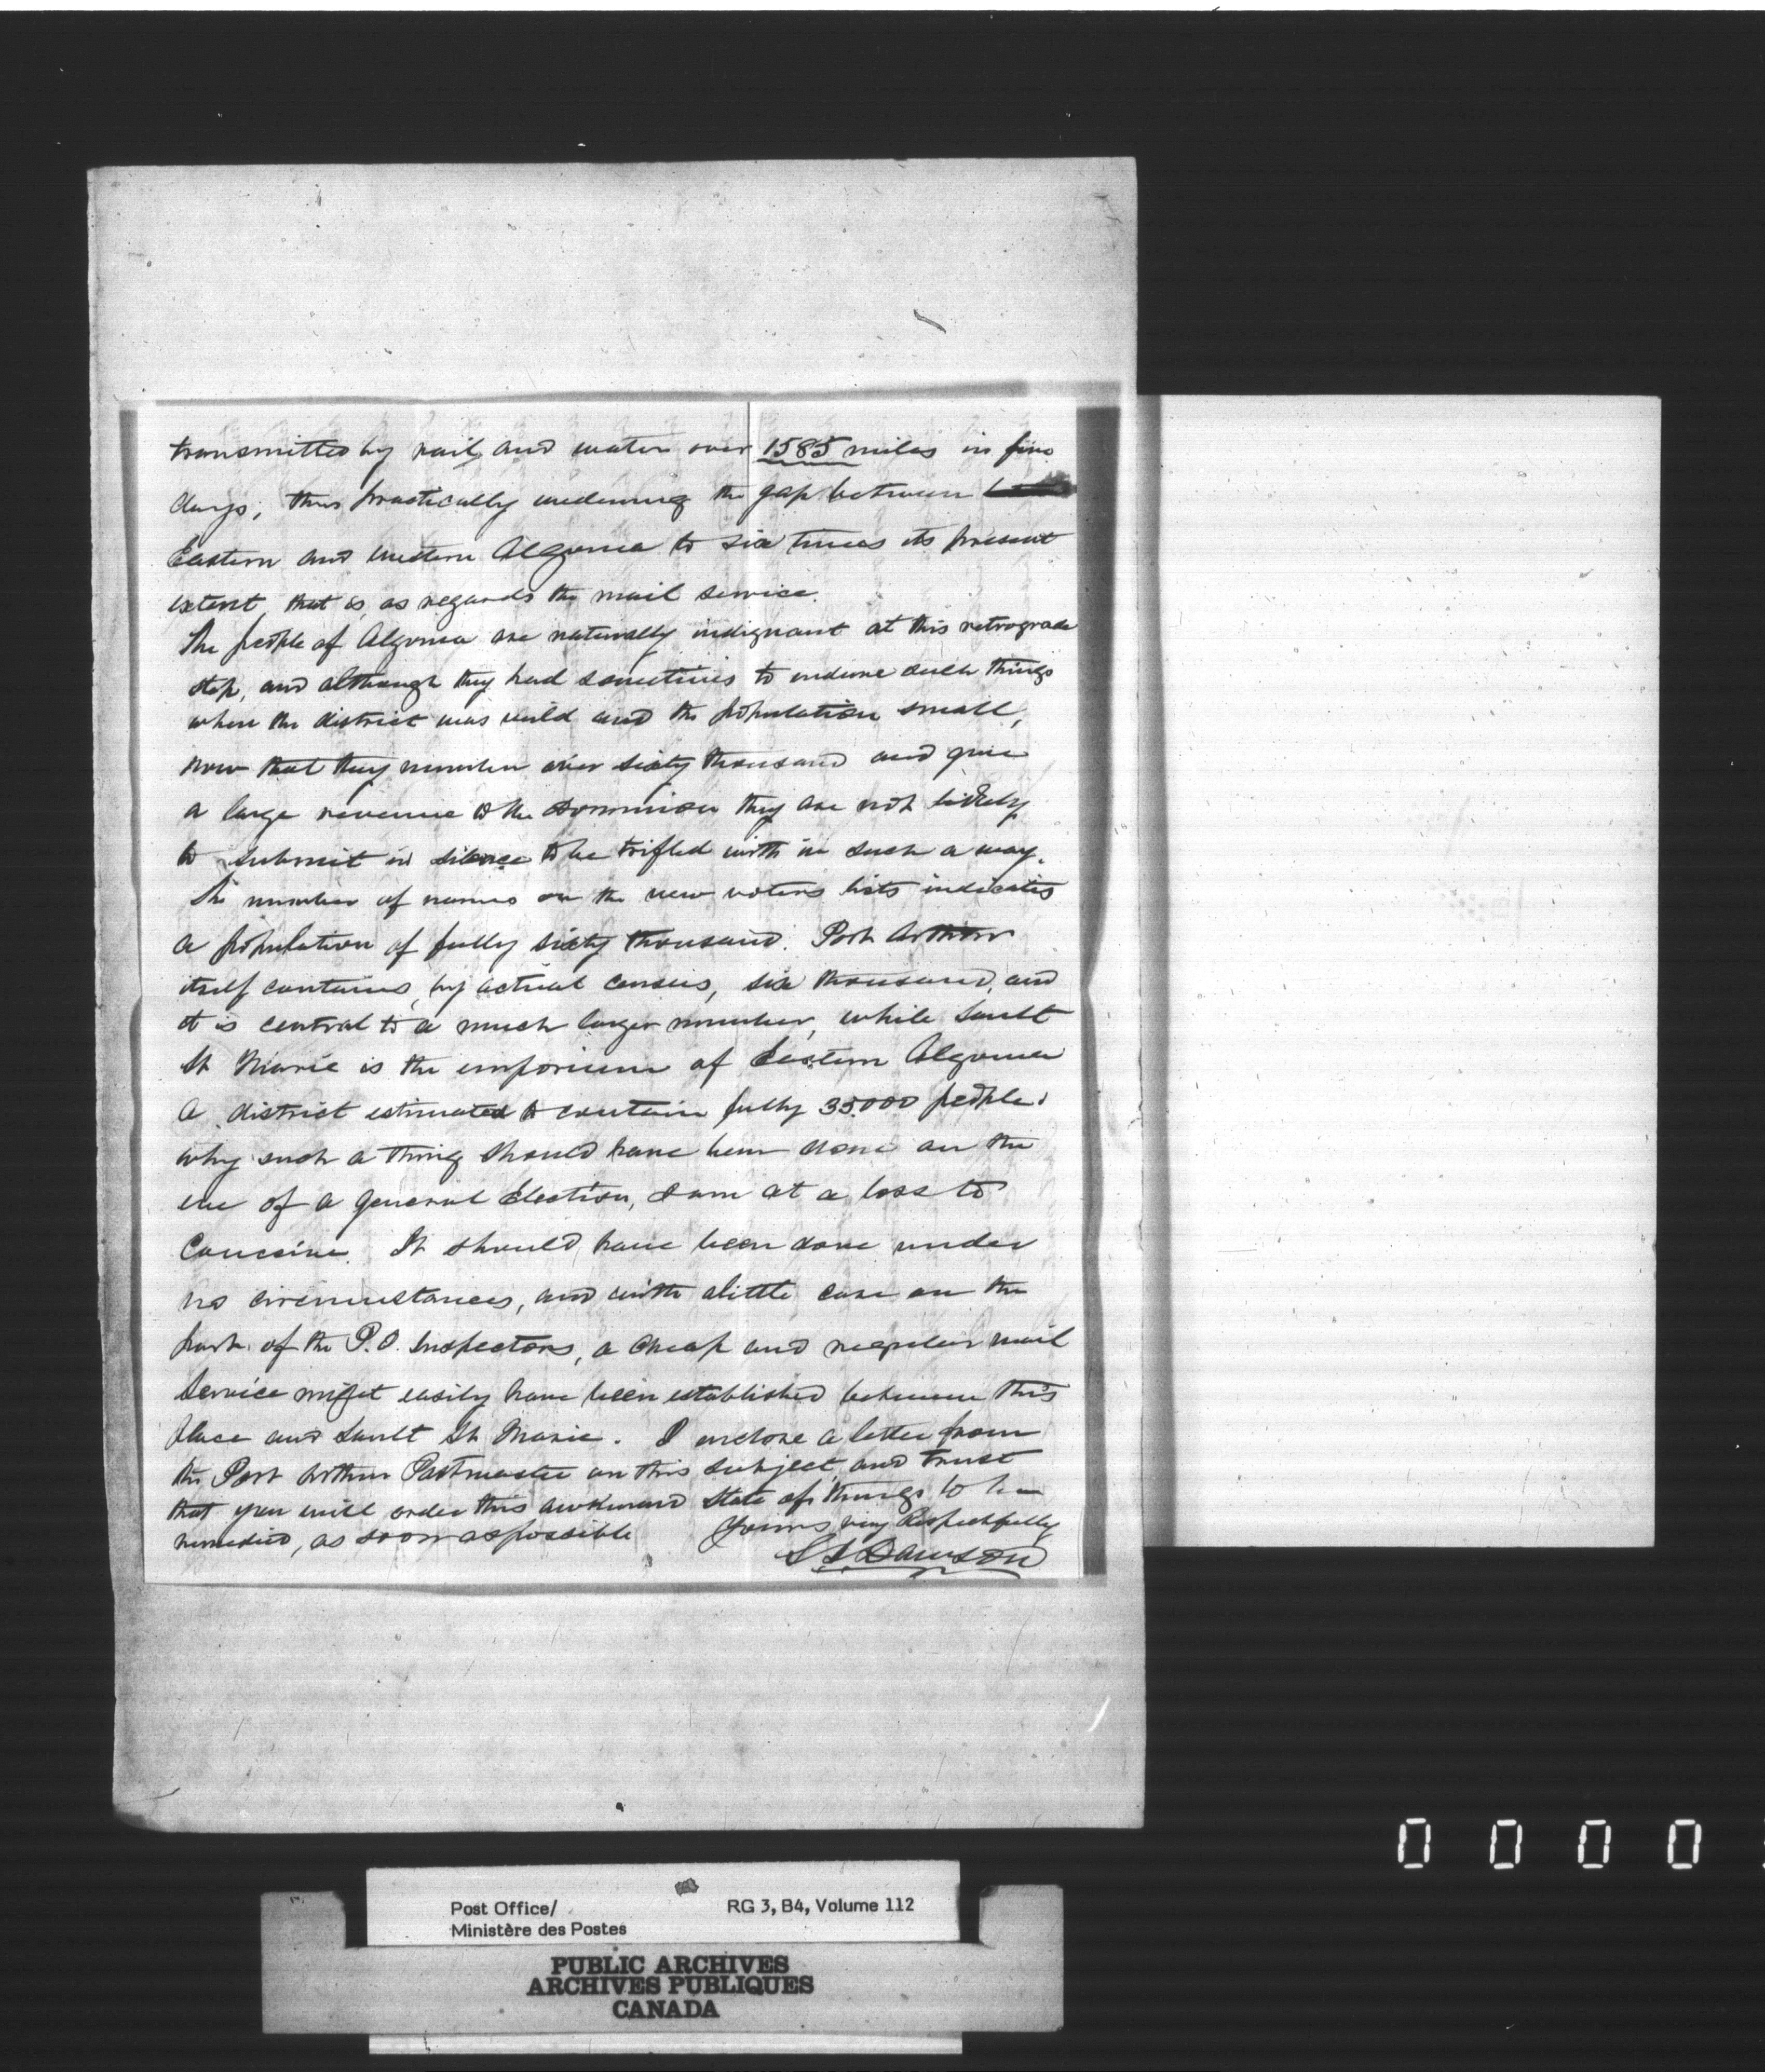 transmitted by rail and water over 1585 miles in five
days, thus practically widening the gap between
Eastern and western Algoma to six times its present
extent, that is, as regards the mail service.
The people of Algoma are naturally indignant at this retrograde
step, and although they had sometimes to endure such things
when the district was wild and the population small,
now that they number over sixty thousand and give
a large revenue to the Dominion they are not likely
to submit in silence to be trifled with in such a way.
The number of names on the new voters lists indicates
a population of fully sixty thousand. Port Arthur
itself contains, by actual census, six thousand, and
it is central to a much larger number, while Sault
St Marie is the emporium of Eastern Algoma
a district estimated to contain fully 35.000 people.
why such a thing should have been done on the
eve of a general Election, I am at a loss to
Conceive. It should have been done under
no circumstances, and with a little care on the
part of the P.O. Inspectors, a cheap and regular mail
Service might easily have been established between this
place and Sault St Marie. I enclose a letter from
the Port Arthur Postmaster on this subject, and trust
that you will order this awkward state of things to be
remedied, as soon as possible
Yours very Respectfully
S J Dawson
0 0 0 0
Post Office/ RG 3, B4, Volume 112
Ministère des Postes
PUBLIC ARCHIVES
ARCHIVES PUBLIQUES
CANADA